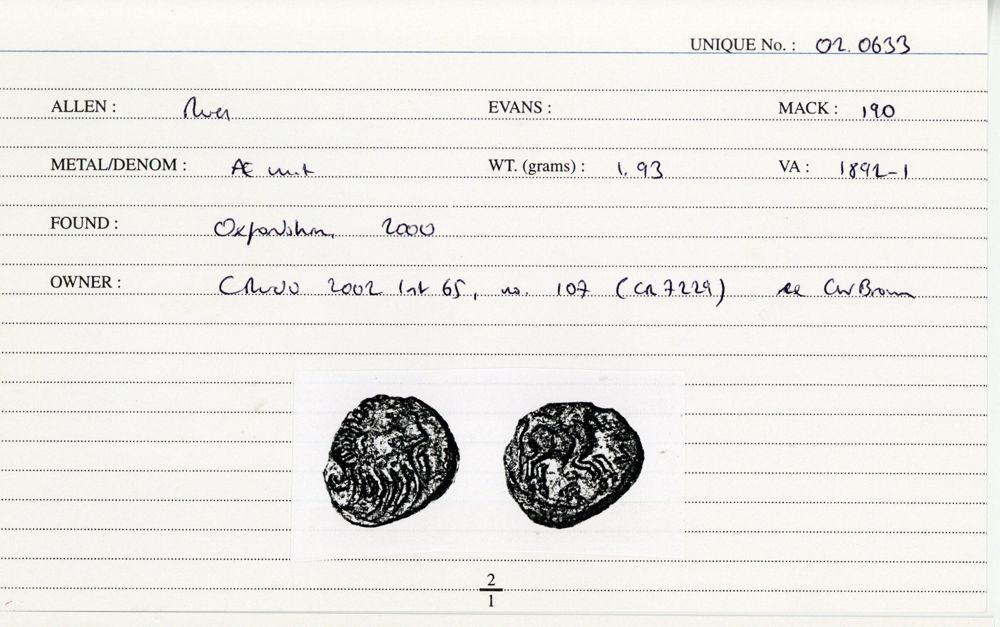 UNIQUE No. : 02.0633
ALLEN : River EVANS : MACK : 190
METAL/DENOM : Æ unit WT. (grams) : 1.93 VA : 1892-1
FOUND : Oxfordshire, 2000
OWNER : 2002 List 65, no. 107 (CR7229) ex CWBrown
2
1